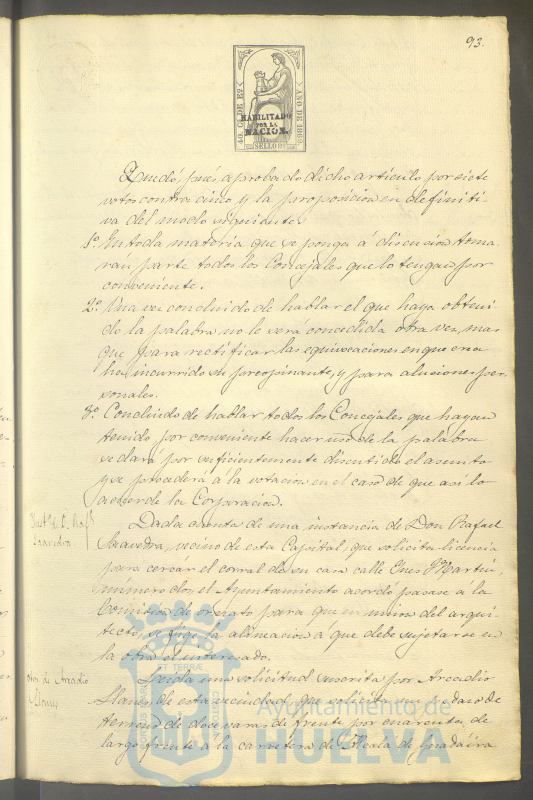 93.
40. C. DE Eº.
AÑO DE 1869.
HABILITADO
POR LA
NACION.
SELLO 9º
Quedó, pues, aprobado dicho artículo por siete
votos contra cinco y la proposicion en definiti-
va del modo siguiente
1º. En toda materia que se ponga á discusion toma
rán parte todos los Concejales que lo tengan por
conveniente.
2º. Una vez concluido de hablar el que haya obteni
do la palabra no le será concedida otra vez, mas
que para rectificar las equivocaciones en que crea
ha incurrido su preopinante, y para alusiones per-
sonales.
3º. Concluido de hablar todos los Concejales que hayan
tenido por conveniente hacer uso de la palabra
se dará por suficientemente discutido el asunto
y se procederá á la votacion en el caso de que asi lo
acuerde la Corporacion.
Insta de D. Rafl
Saavedra
Dada cuenta de una instancia de Don Rafael
Saavedra, vecino de esta Capital, que solicita licencia
para cercar el corral de su casa calle Ynes Martin,
número dos, el Ayuntamiento acordó pasase á la
Comision de ornato para que en union del arqui-
tecto, se fije la alineacion a que debe sujetarse en
la obra el interesado.
Otra de Arcadio
Llanes
Leida una solicitud suscrita por Arcadio
Llanes de esta vecindad que solicita
terreno de doce varas de frente por cuarenta de
largo frente á la carretera de Alcalá de Guadaira
ET TERRAE
Ayuntamiento de
HUELVA